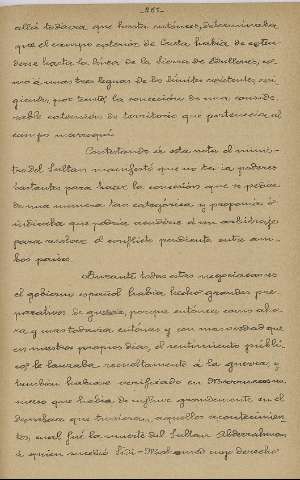 -265-
allá todavía que hasta entónces, determinaba
que el campo exterior de Ceuta había de esten
derse hasta la linea de la Sierra de Bullones, co-
mó á unas tres leguas de los límites existentes, exi-
giendo, por tanto, la concesión de una conside-
rable estension de territorio que pertenecia al
campo marroquí.
Contestando á esta nota el minis-
tro del Sultan manifestó que no tenia poderes
bastantes para hacer la concesión que se pedia
de una manera tan categórica y proponía ó
indicaba que podria acudirse á un arbitraje
para resolver el conflicto pendiente entre am-
bos paises.
Durante todas estas negociaciones
el gobierno español había hecho grandes pre-
parativos de guerra, porque entónces como aho-
ra y mas todavia entónces y con mas verdad que
en nuestros propios dias, el sentimiento públi-
co le lanzaba resueltamente á la guerra, y
tambien habíase verificado en Marruecos un
suceso que habia de influir grandemente en el
desenlace que tuvieran aquellos acontecimien-
tos, cual fué la muerte del Sultan Abderrahman
á quien sucedió Sidi-Mohamed muy derecho